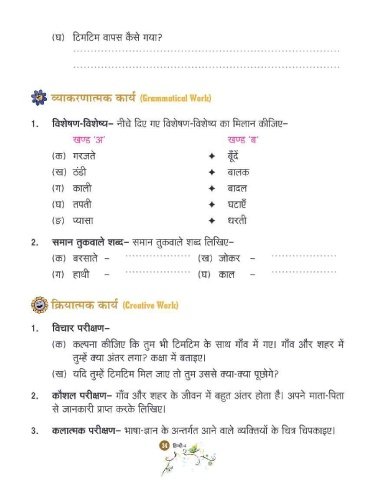 (घ) टिमटिम वापस कैसे गया?
व्याकरणात्मक कार्य (Grammatical Work)
1. विशेषण-विशेष्य– नीचे दिए गए विशेषण-विशेष्य का मिलान कीजिए–
खण्ड 'अ' खण्ड 'ब'
(क) गरजते ✦ बूँदें
(ख) ठंडी ✦ बालक
(ग) काली ✦ बादल
(घ) तपती ✦ घटाएँ
(ङ) प्यासा ✦ धरती
2. समान तुकवाले शब्द– समान तुकवाले शब्द लिखिए–
(क) बरसाते – (ख) जोकर –
(ग) हाथी – (घ) काल –
क्रियात्मक कार्य (Creative Work)
1. विचार परीक्षण–
(क) कल्पना कीजिए कि तुम भी टिमटिम के साथ गाँव में गए। गाँव और शहर में
तुम्हें क्या अंतर लगा? कक्षा में बताइए।
(ख) यदि तुम्हें टिमटिम मिल जाए तो तुम उससे क्या-क्या पूछोगे?
2. कौशल परीक्षण– गाँव और शहर के जीवन में बहुत अंतर होता है। अपने माता-पिता
से जानकारी प्राप्त करके लिखिए।
3. कलात्मक परीक्षण– भाषा-ज्ञान के अन्तर्गत आने वाले व्यक्तियों के चित्र चिपकाइए।